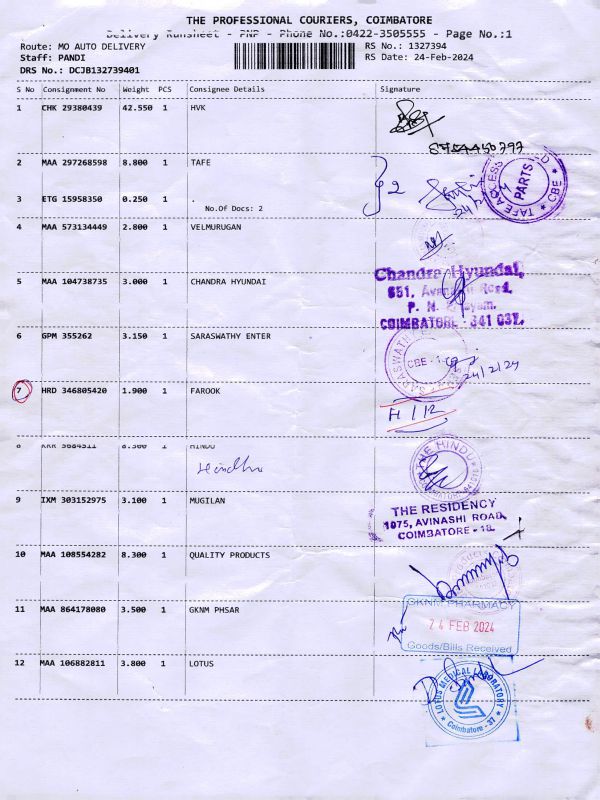 THE PROFESSIONAL COURIERS, COIMBATORE
Delivery Runsheet - PNP - Phone No.:0422-3505555 - Page No.:1
Route: MO AUTO DELIVERY RS No.: 1327394
Staff: PANDI RS Date: 24-Feb-2024
DRS No.: DCJB132739401
S No Consignment No Weight PCS Consignee Details Signature
1 CHK 29380439 42.550 1 HVK
2 MAA 297268598 8.800 1 TAFE
TAFE ACCESS
PARTS
CBE
3 ETG 15958350 0.250 1 .
No.Of Docs: 2
4 MAA 573134449 2.800 1 VELMURUGAN
5 MAA 104738735 3.000 1 CHANDRA HYUNDAI
Chandra Hyundai,
651, Avanashi Road,
COIMBATORE - 641 037.
6 GPM 355262 3.150 1 SARASWATHY ENTER
CBE - 1
24/2/24
7 HRD 346805420 1.900 1 FAROOK
H/12
8 KRR 5684511 8.500 1 HINDU
Hindhu
THE HINDU
9 IXM 303152975 3.100 1 MUGILAN
THE RESIDENCY
1075, AVINASHI ROAD,
COIMBATORE - 18.
10 MAA 108554282 8.300 1 QUALITY PRODUCTS
11 MAA 864178080 3.500 1 GKNM PHSAR
GKNM PHARMACY
24 FEB 2024
Goods/Bills Received
12 MAA 106882811 3.800 1 LOTUS
LOTUS MEDICAL LABORATORY
Coimbatore - 37